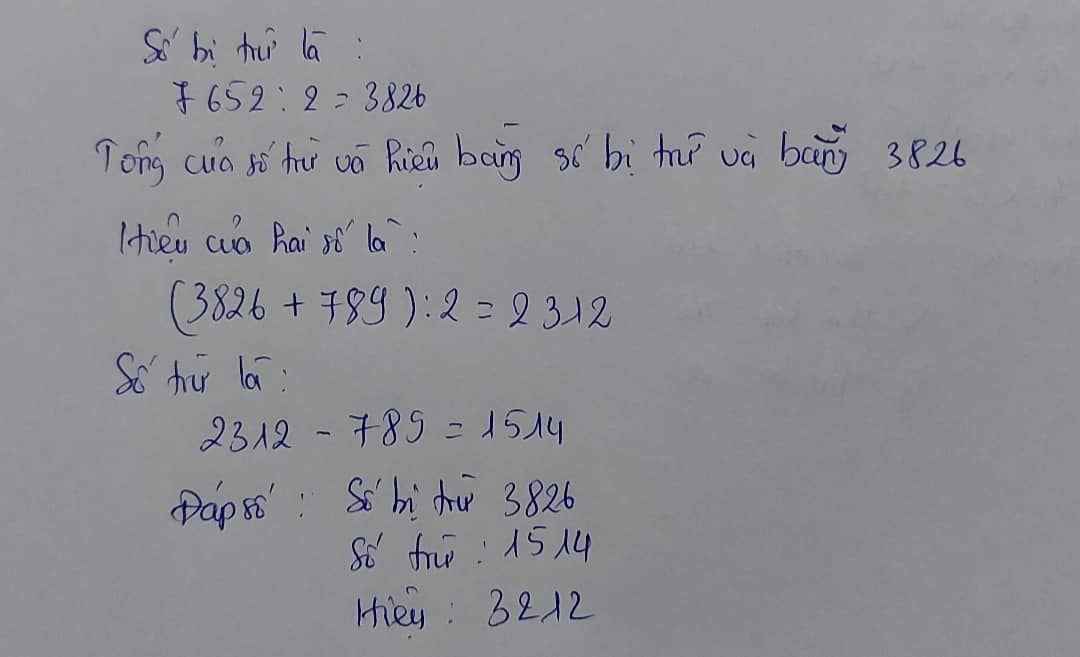 Số bị trừ là :
7652 : 2 = 3826
Tổng của số trừ và hiệu bằng số bị trừ và bằng 3826
Hiệu của hai số là :
(3826 + 789) : 2 = 2312
Số trừ là :
2312 - 789 = 1514
Đáp số : Số bị trừ 3826
Số trừ : 1514
Hiệu : 3212